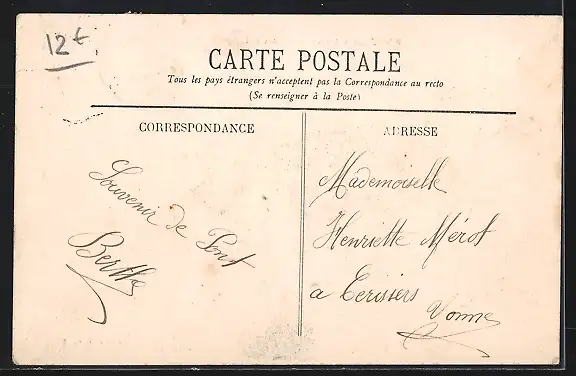 12 €
CARTE POSTALE
Tous les pays étrangers n'acceptent pas la Correspondance au recto
(Se renseigner à la Poste)
CORRESPONDANCE
Souvenir de Pont
Berthe
ADRESSE
Mademoiselle
Henriette Mérot
a Cerisiers
Yonne